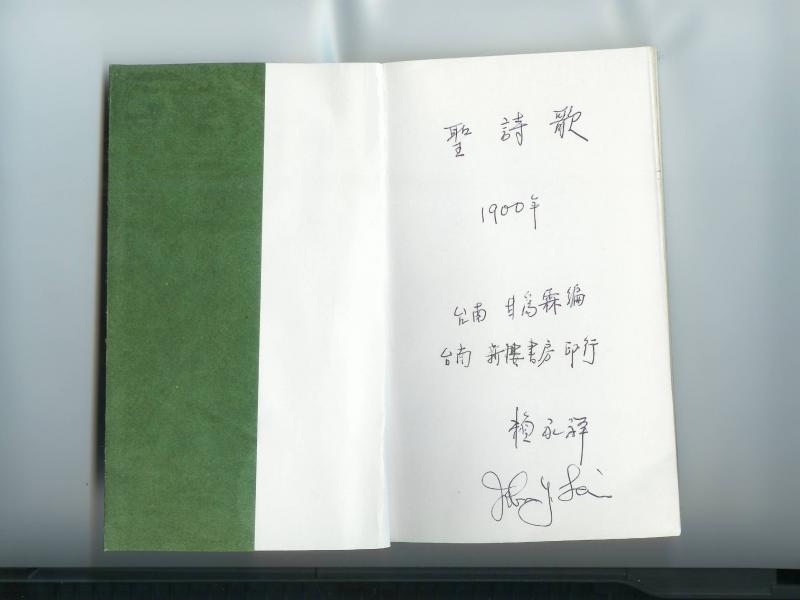 聖詩歌
1900年
台南 甘爲霖編
台南 新樓書房印行
賴永祥